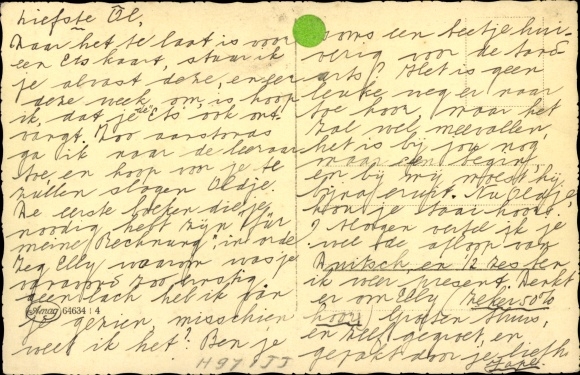 Liefste El,
Daar het te laat is voor
een Elskaart, stuur ik
je alvast deze, en er
deze week om, is hoop
ik, dat je die Els ook ont-
vangt. Zoo aanstonds
ga ik naar de leeraar
toe, en hoop van je te
zullen slagen Eldje.
De eerste boeken die je
noodig hebt zijn "für
meine Rechnung" in orde
Zeg Elly, waarom was je
vanavond zoo ernstig.
geen lach heb ik van
je gezien misschien
weet ik het? Ben je
soms een beetje hui-
verig voor de tand-
arts? Het is geen
leuke weg er naar
toe hoor, maar het
zal wel meevallen,
het is bij jou nog
maar een begin,
en bij mij moest hij
bijna eruit. Nu Eldje,
hou je taai hoor!
Morgen vertel ik je
wel de afloop van
Duitsch, en 12 Zes ben
ik weer present. Denkt
er om Elly (zeker 50%
hoor) Groeten thuis,
en zelf gegroet, en
gepakt door je liefh.
Amag 64634 : 4
H 97 IJJ